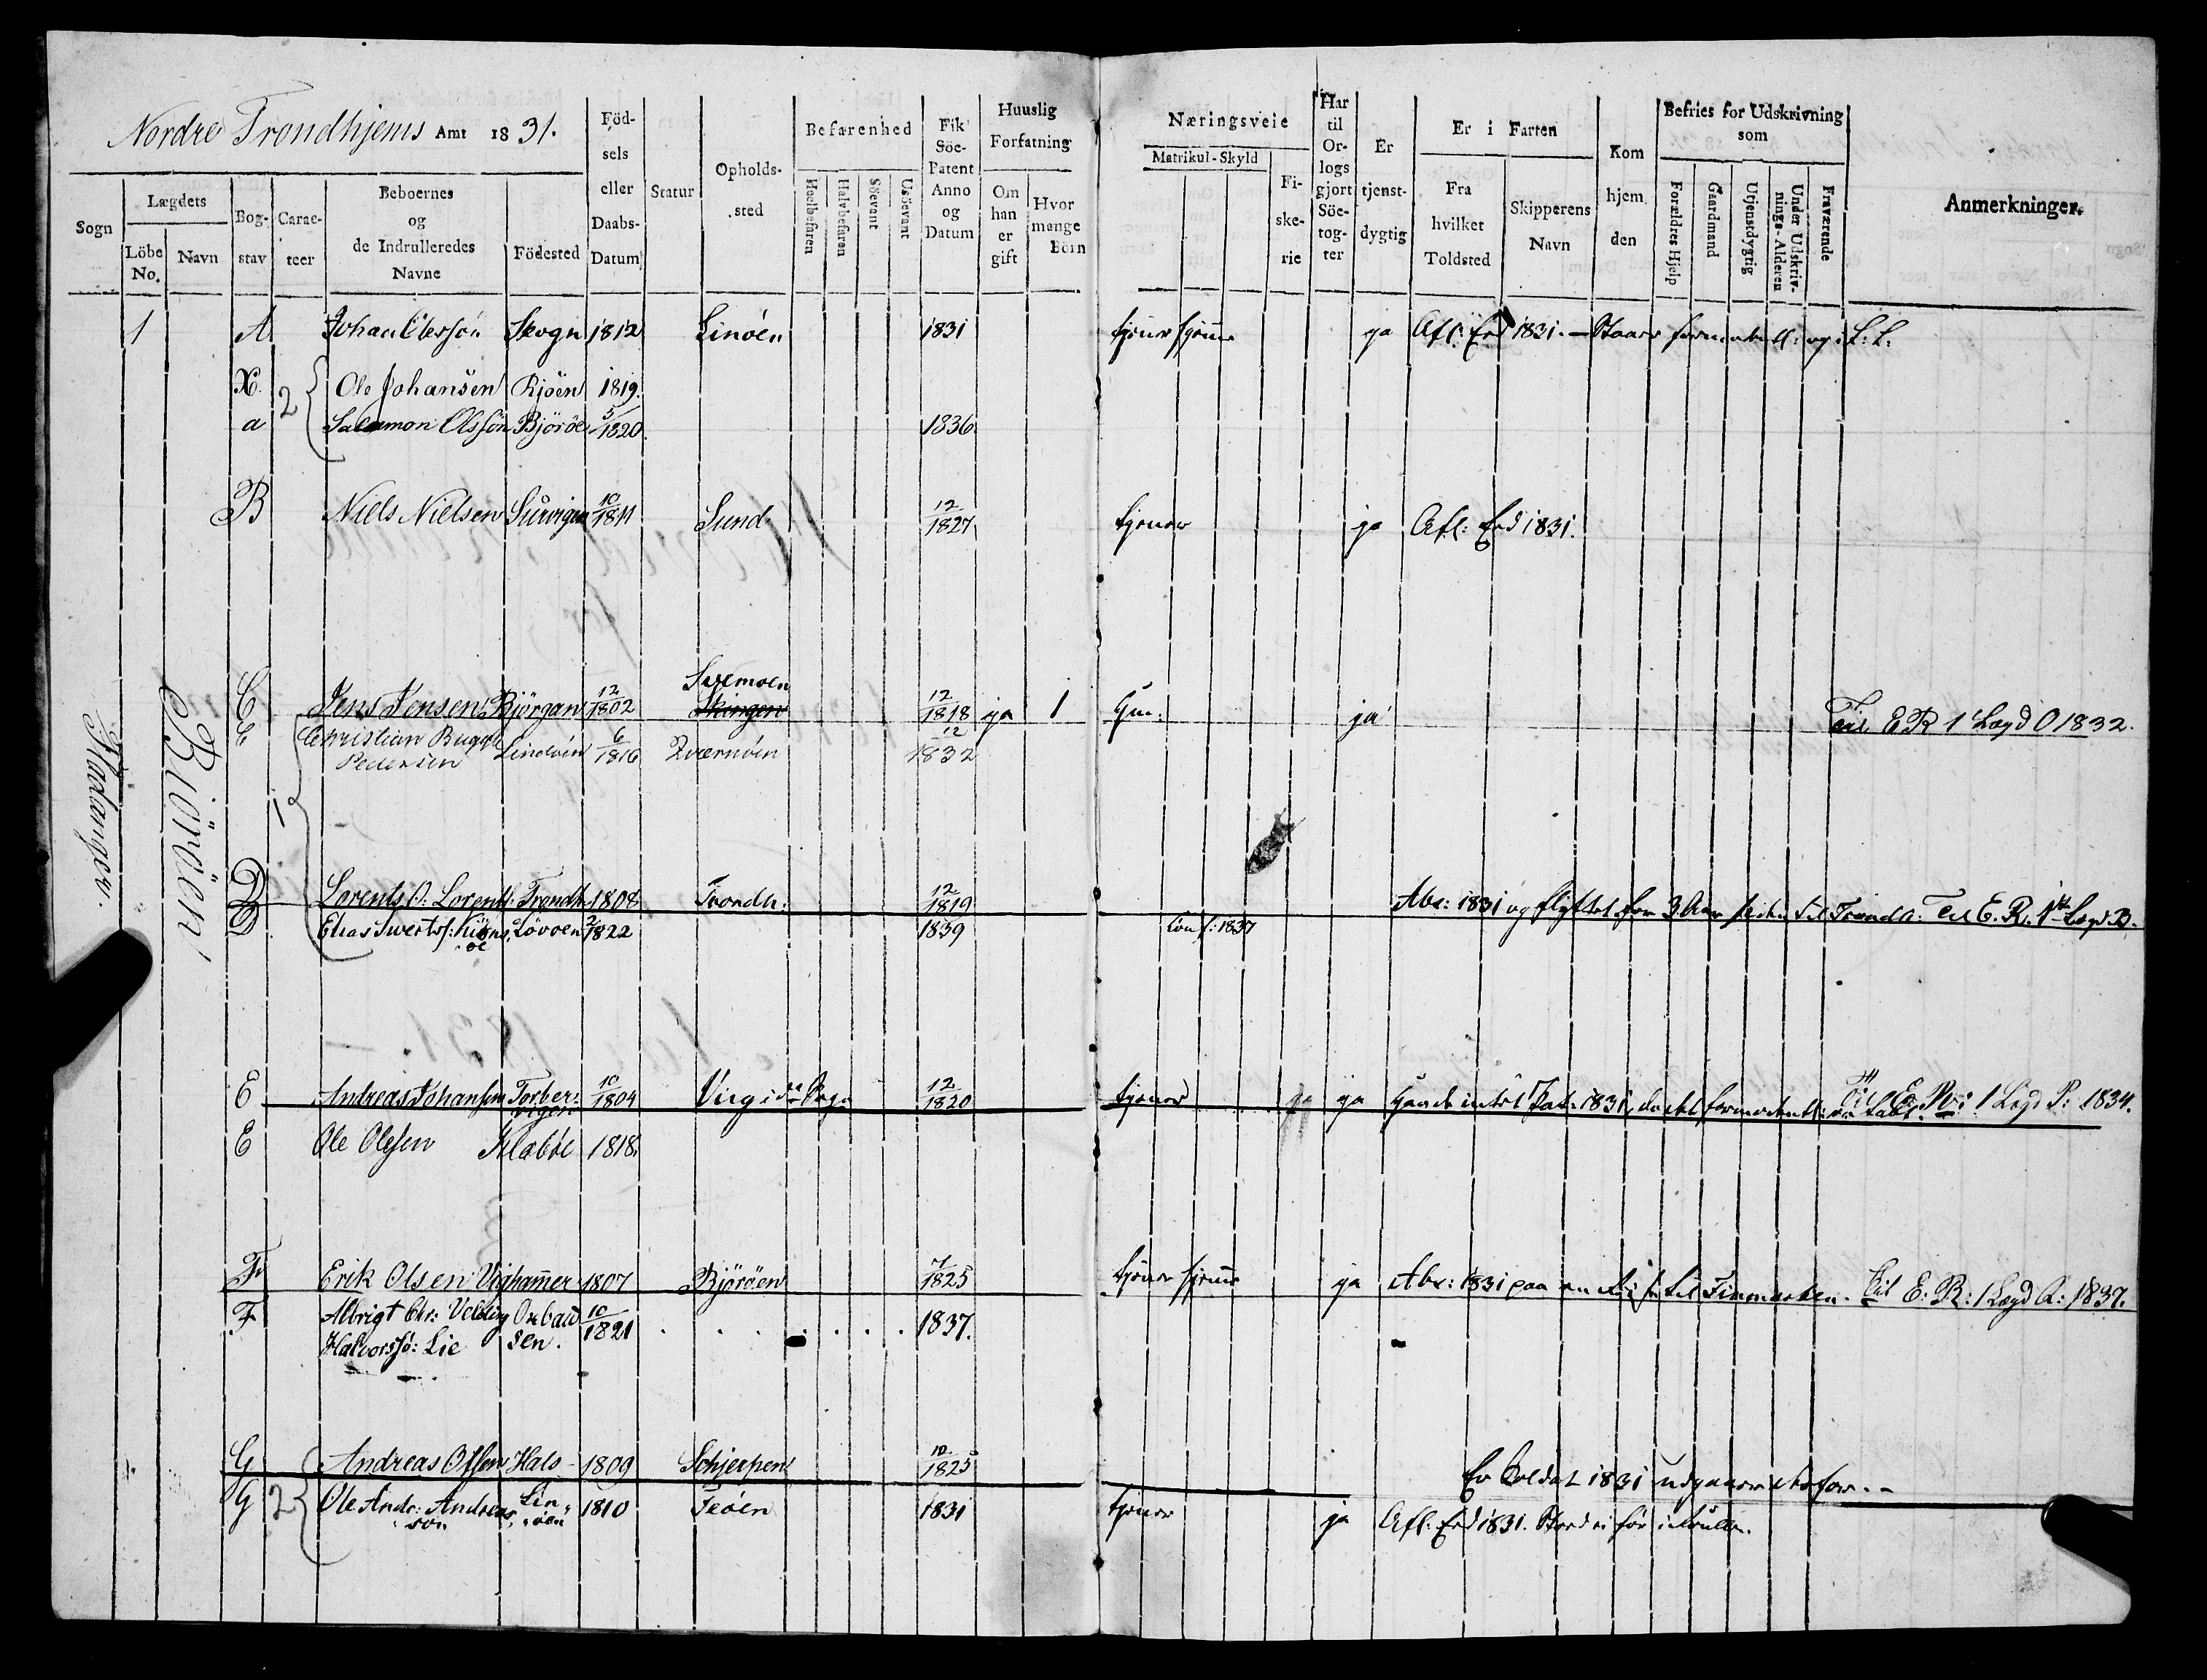 Nordre Trondhjems Amt 1831.
Sogn
Lægdets
Löbe No.
Navn
Bog-stav
Carac-teer
Beboernes og de Indrulleredes Navne
Födested
Föd-sels eller Daabs-Datum
Statur
Opholds-sted
Befarenhed
Heelbefaren
Halvbefaren
Söevant
Usöevant
Fik Söe-Patent Anno og Datum
Huuslig Forfatning
Om han er gift
Hvor mange Börn
Næringsveie
Matrikul-Skyld
Fi-ske-rie
Har til Or-logs gjort Söe-tog-ter
Er tjenst-dygtig
Er i Farten
Fra hvilket Toldsted
Skipperens Navn
Kom hjem den
Befries for Udskrivning som
Forældres Hjelp
Gaardmand
Utjenstdygtig
Under Udskriv-nings-Alderen
Fraværende
Anmerkninger.
Fladanger.
Biöröen
1 A Johan Olessön Skogn 1812 Linöen 1831 tjener hjemme ja Afl: Eed 1831. - Staaer
2
X. Ole Johansen Bjöen 1819.
a Salamon Olssön Björöe 5/1820. 1836.
B Niels Nielsen Survigen 10/1811 Sund 12/1827 tjener ja Afl: Eed 1831.
Svemoen
C Jens Jensen Björgan 12/1802 Skingen 12/1818 ja 1 Gm: ja Til E R 1 Lægd O 1832.
1
C Christian Bugge Lindöen 6/1816 Qværnöen 12/1832
Pedersen
D Lorents O: Lorents: Trondh. 1808 Trondh: 12/1819 Abs: 1831 og flyttet for 3 Aar siden til Trondh: Til E. R. 1ste Lægd B.
D Elias Sivertss: Lövöen 2/1822 1839 Conf: 1837
E Andreas Johansen Torber: 10/1804 Virgid 12/1820 tjener ja ja Til E. R: 1 Lægd P: 1834.
vigen
E Ole Olssen Klæböe 1818.
F Erik Olsen Vighamer 1807 Björöen 7/1825 tjener hjemme ja Abs: 1831 paa en til Finmarken. Til E: R: 1 Lægd A: 1837.
F Albrigt Chr: Velding Oxbaad 10/1821 1837.
Halvorssö: Lie sen.
G Andreas Olssen Hals 1809 Schjerpen 10/1825 Er Soldat 1831 udgaaer derfor. -
2
G Ole Andr: Andreas Lin 1810 Teöen 1831 tjener ja Afl: Eed 1831. Stod ei för i Rullen.
son öen